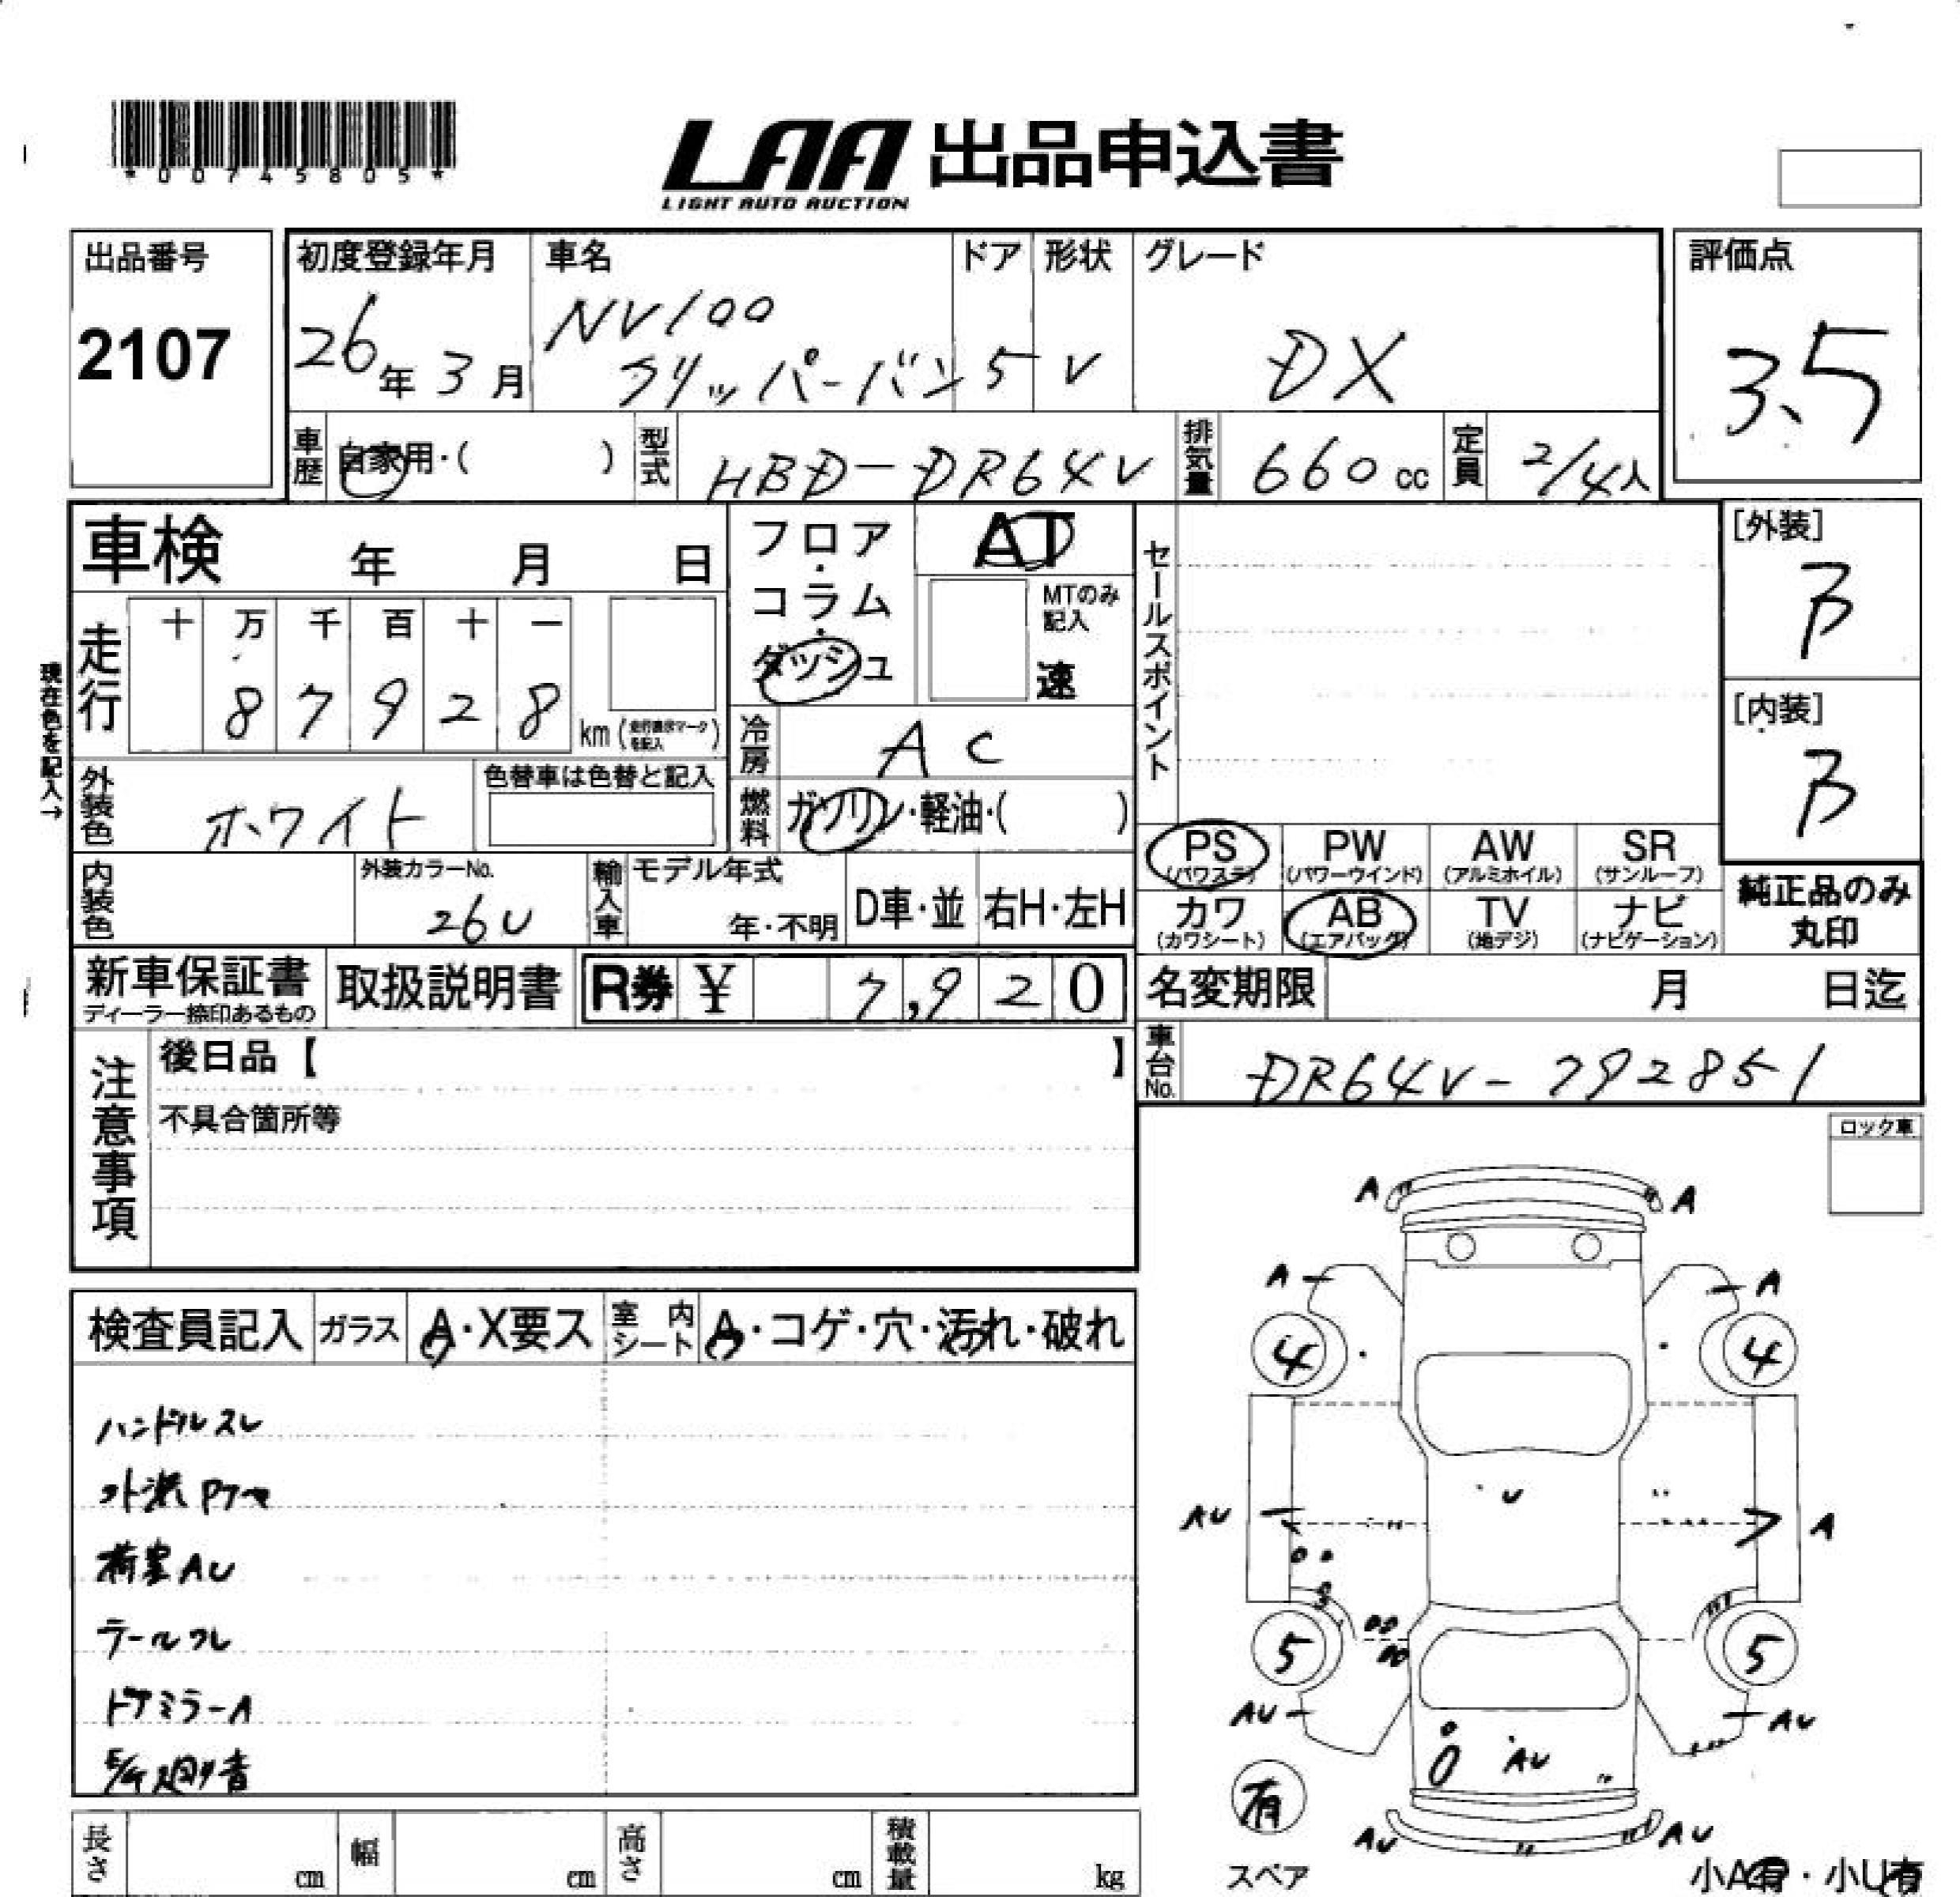 *00745805*
LAA 出品申込書
LIGHT AUTO AUCTION
出品番号
2107
初度登録年月
26年 3月
車名
NV100
クリッパーバン
ドア
5
形状
V
グレード
DX
評価点
3.5
車歴
自家用・( )
型式
HBD-DR64V
排気量
660cc
定員
2/4人
車検 年 月 日
フロア・コラム・ダッシュ
AT
MTのみ記入
速
セールスポイント
[外装]
B
[内装]
B
現在色を記入→
走行
十 万 千 百 十 一
8 7 9 2 8 km
冷房
AC
外装色
ホワイト
色替車は色替と記入
燃料
ガソリン・軽油・( )
PS (パワステ)
PW (パワーウインド)
AW (アルミホイル)
SR (サンルーフ)
カワ (カワシート)
AB (エアバッグ)
TV (地デジ)
ナビ (ナビゲーション)
純正品のみ
丸印
内装色
外装カラーNo.
26U
輸入車
モデル年式
年・不明
D車・並
右H・左H
新車保証書
ディーラー捺印あるもの
取扱説明書
R券 ¥ 7,920
名変期限 月 日迄
車台No.
DR64V-792851
注意事項
後日品【 】
不具合箇所等
ロック車
検査員記入
ガラス
A・X要ス
室内シート
A・コゲ・穴・汚れ・破れ
ハンドルスレ
外装Pアセ
荷室AU
テールワレ
ドアミラーA
E/G廻り音
A A
A A
4 4
U
AU A
5 5
AU AU
AU
有
スペア
AU AU
小A有・小U有
長さ cm
幅 cm
高さ cm
積載量 kg